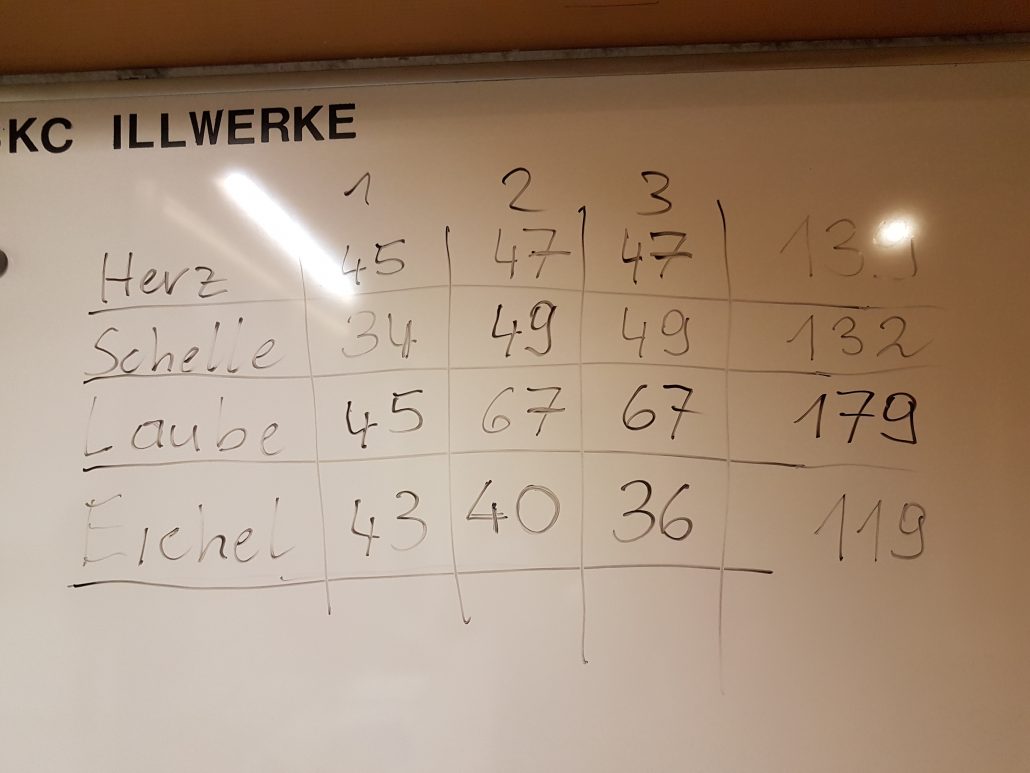 KC ILLWERKE
1 2 3
Herz 45 47 47 139
Schelle 34 49 49 132
Laube 45 67 67 179
Eichel 43 40 36 119